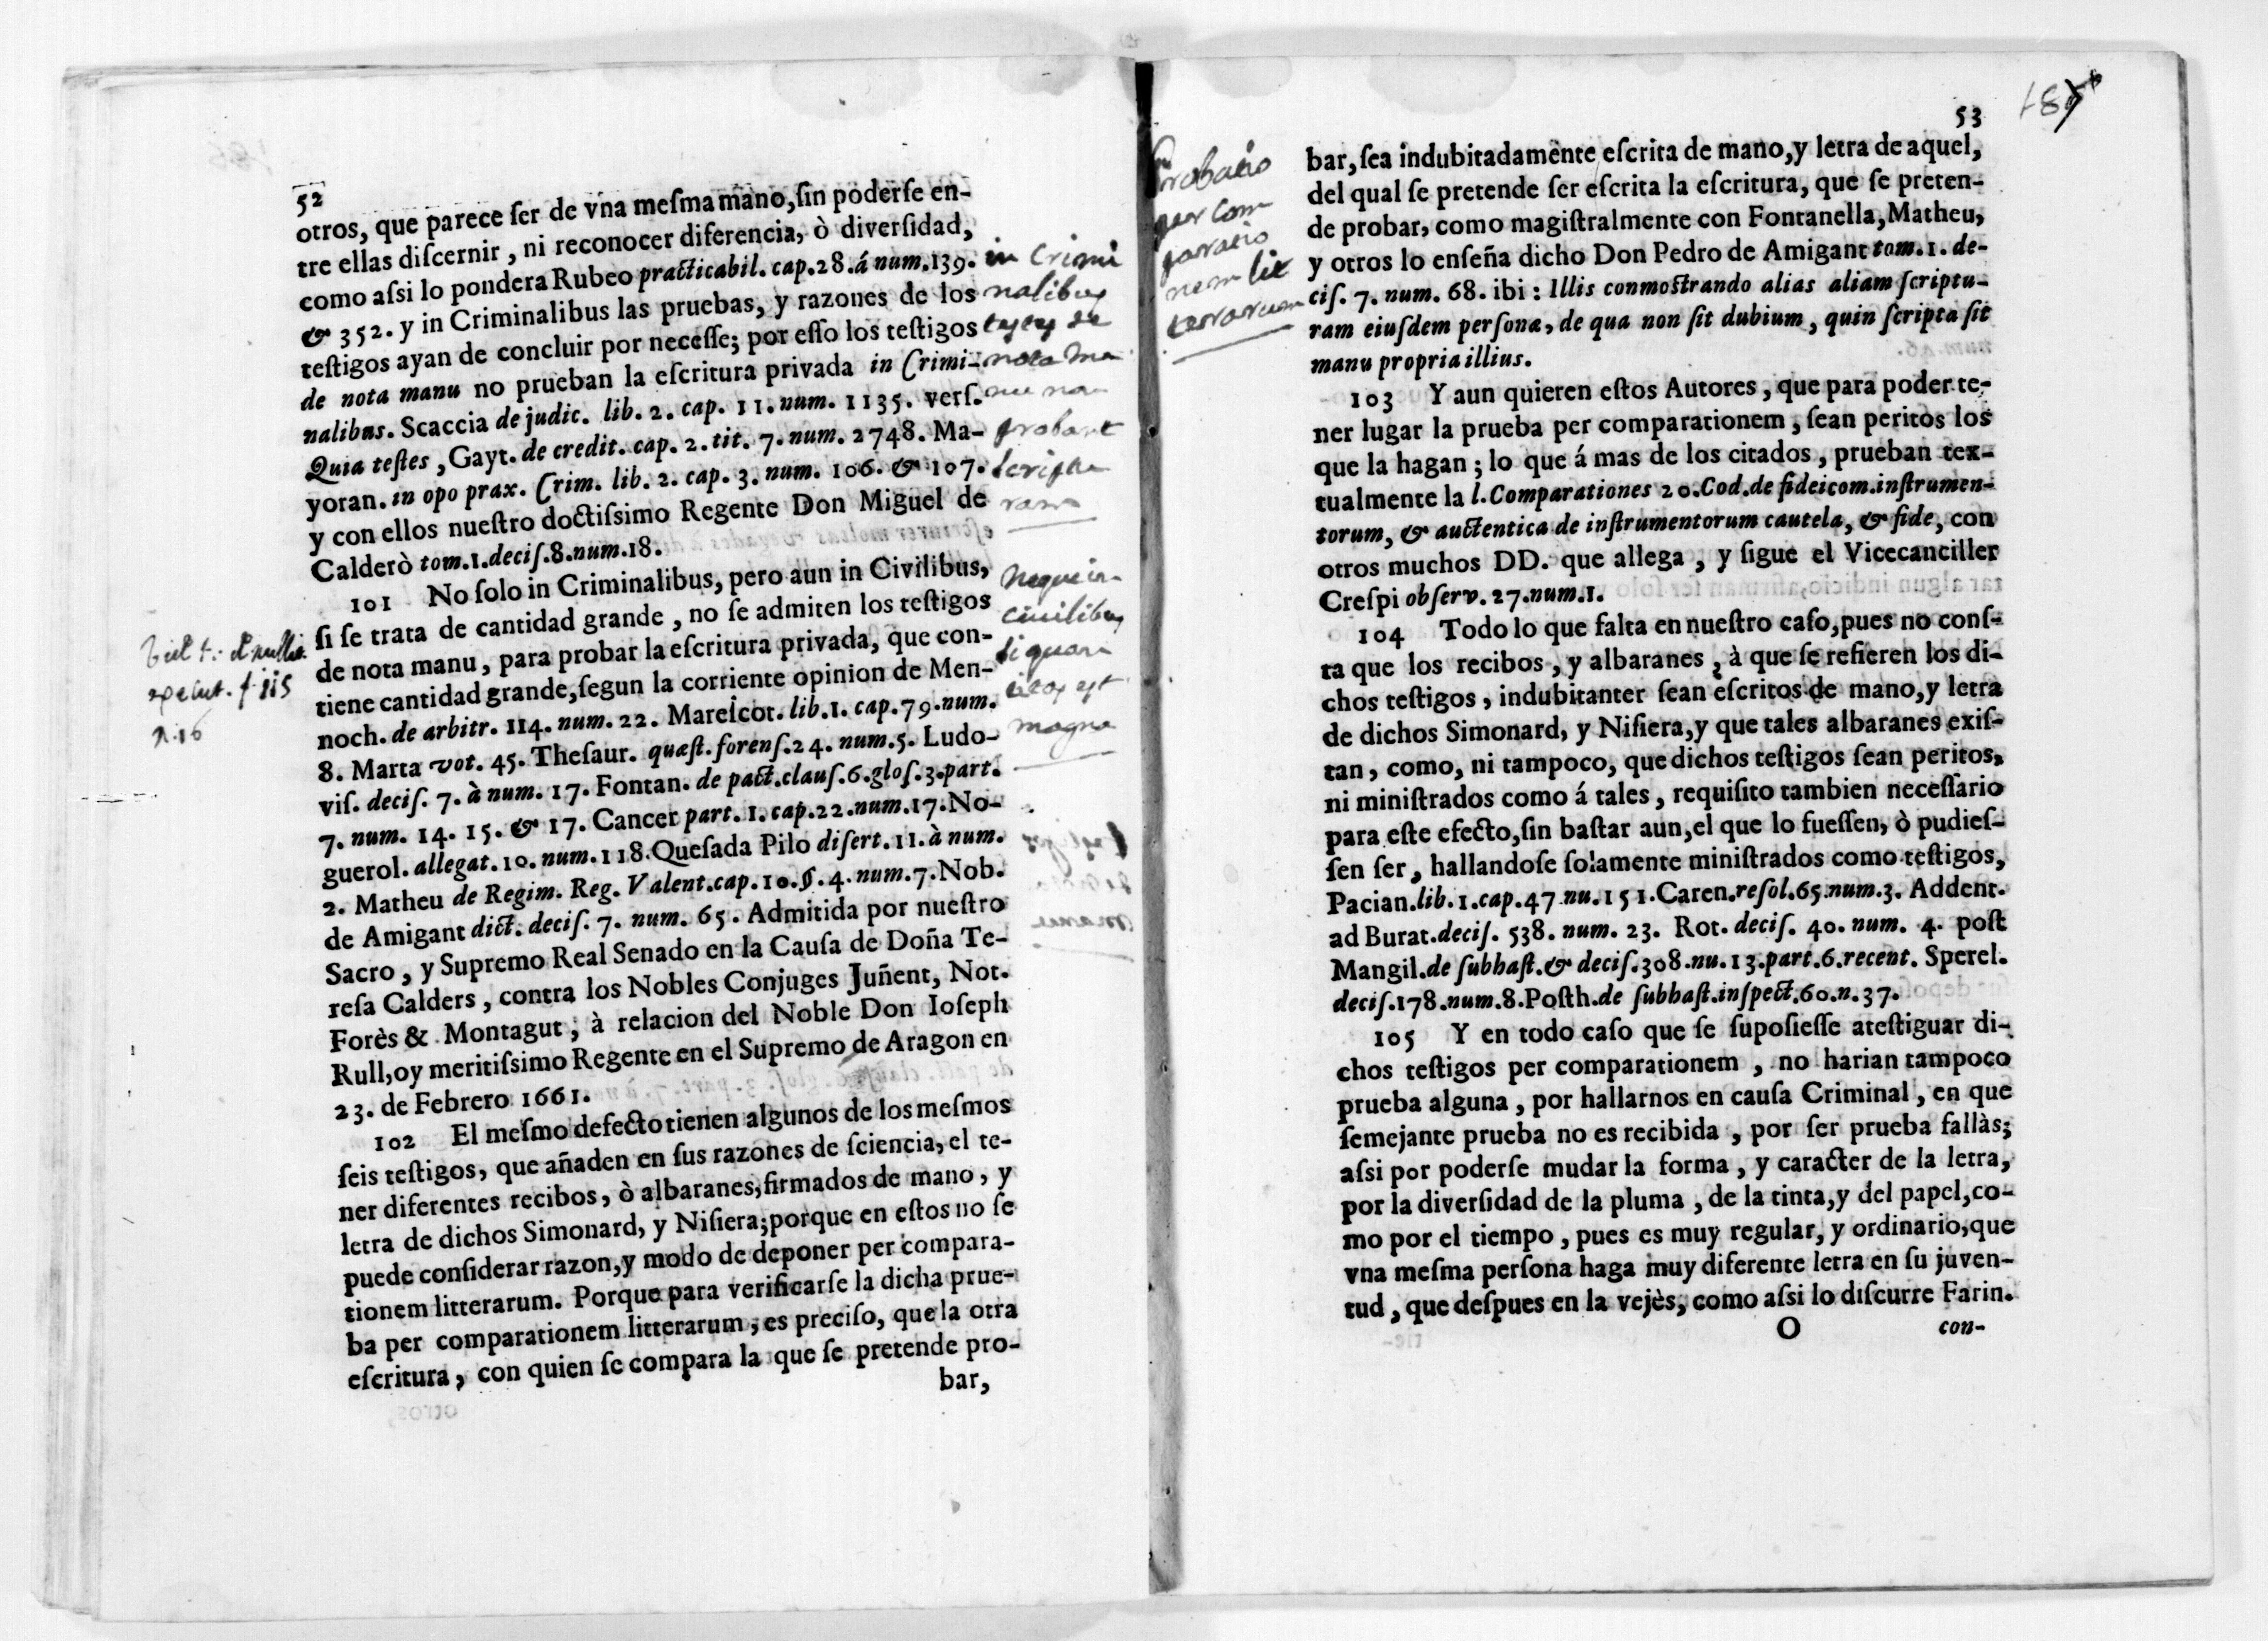 52
otros, que parece ſer de vna meſma mano, ſin poderſe en-
tre ellas diſcernir, ni reconocer diferencia, ò diverſidad,
como aſsi lo pondera Rubeo practicabil. cap.28.á num.139.
& 352. y in Criminalibus las pruebas, y razones de los
teſtigos ayan de concluir por neceſſe; por eſſo los teſtigos
de nota manu no prueban la eſcritura privada in Crimi-
nalibus. Scaccia de judic. lib. 2. cap. 11. num. 1135. verſ.
Quia teſtes, Gayt. de credit. cap. 2. tit. 7. num. 2748. Ma-
yoran. in opo prax. Crim. lib. 2. cap. 3. num. 106. & 107.
y con ellos nueſtro doctiſsimo Regente Don Miguel de
Calderò tom.1.deciſ.8.num.18.
in Crimi
nalibus
testes de
nota ma
nu non
probant
scriptu
ram
101 No ſolo in Criminalibus, pero aun in Civilibus,
ſi ſe trata de cantidad grande, no ſe admiten los teſtigos
de nota manu, para probar la eſcritura privada, que con-
tiene cantidad grande, ſegun la corriente opinion de Men-
noch. de arbitr. 114. num. 22. Mareſcot. lib.1. cap.79.num.
8. Marta vot. 45. Theſaur. quæſt. forenſ.24. num.5. Ludo-
viſ. deciſ. 7. à num. 17. Fontan. de pact.clauſ.6.gloſ.3.part.
7. num. 14. 15. & 17. Cancer part. 1. cap.22.num.17.No-
guerol. allegat.10. num.118.Queſada Pilo diſert.11.à num.
2. Matheu de Regim. Reg. Valent.cap.10.§.4.num.7.Nob.
de Amigant dict. deciſ. 7. num. 65. Admitida por nueſtro
Sacro, y Supremo Real Senado en la Cauſa de Doña Te-
reſa Calders, contra los Nobles Conjuges Juñent, Not.
Forès & Montagut; à relacion del Noble Don Ioſeph
Rull, oy meritiſsimo Regente en el Supremo de Aragon en
23. de Febrero 1661.
neque in
ciuilibus
si quan
titas est
magna
n.16
102 El meſmo defecto tienen algunos de los meſmos
ſeis teſtigos, que añaden en ſus razones de ſciencia, el te-
ner diferentes recibos, ò albaranes, firmados de mano, y
letra de dichos Simonard, y Niſiera; porque en eſtos no ſe
puede conſiderar razon, y modo de deponer per compara-
tionem litterarum. Porque para verificarſe la dicha prue-
ba per comparationem litterarum, es preciſo, que la otra
eſcritura, con quien ſe compara la que ſe pretende pro-
bar,
53
187
Probatio
per com
paratio
nem lit
terarum
bar, ſea indubitadamente eſcrita de mano, y letra de aquel,
del qual ſe pretende ſer eſcrita la eſcritura, que ſe preten-
de probar, como magiſtralmente con Fontanella, Matheu,
y otros lo enſeña dicho Don Pedro de Amigant tom.1. de-
ciſ. 7. num. 68. ibi: Illis conmoſtrando alias aliam ſcriptu-
ram eiuſdem perſonæ, de qua non ſit dubium, quin ſcripta ſit
manu propria illius.
103 Y aun quieren eſtos Autores, que para poder te-
ner lugar la prueba per comparationem, ſean peritos los
que la hagan; lo que á mas de los citados, prueban tex-
tualmente la l.Comparationes 20.Cod.de fideicom.inſtrumen-
torum, & auctentica de inſtrumentorum cautela, & fide, con
otros muchos DD. que allega, y ſigue el Vicecanciller
Creſpi obſerv. 27.num.1.
104 Todo lo que falta en nueſtro caſo, pues no conſ-
ta que los recibos, y albaranes, à que ſe refieren los di-
chos teſtigos, indubitanter ſean eſcritos de mano, y letra
de dichos Simonard, y Niſiera, y que tales albaranes exiſ-
tan, como, ni tampoco, que dichos teſtigos ſean peritos,
ni miniſtrados como á tales, requiſito tambien neceſſario
para eſte efecto, ſin baſtar aun, el que lo fueſſen, ò pudieſ-
ſen ſer, hallandoſe ſolamente miniſtrados como teſtigos,
Pacian.lib.1.cap.47.nu.151.Caren.reſol.65.num.3. Addent.
ad Burat.deciſ. 538. num. 23. Rot. deciſ. 40. num. 4. poſt
Mangil.de ſubhaſt.& deciſ.308.nu.13.part.6.recent. Sperel.
deciſ.178.num.8.Poſth.de ſubhaſt.inſpect.60.n.37.
105 Y en todo caſo que ſe ſupoſieſſe ateſtiguar di-
chos teſtigos per comparationem, no harian tampoco
prueba alguna, por hallarnos en cauſa Criminal, en que
ſemejante prueba no es recibida, por ſer prueba fallàs;
aſsi por poderſe mudar la forma, y caracter de la letra,
por la diverſidad de la pluma, de la tinta, y del papel, co-
mo por el tiempo, pues es muy regular, y ordinario, que
vna meſma perſona haga muy diferente letra en ſu juven-
tud, que deſpues en la vejès, como aſsi lo diſcurre Farin.
O con-